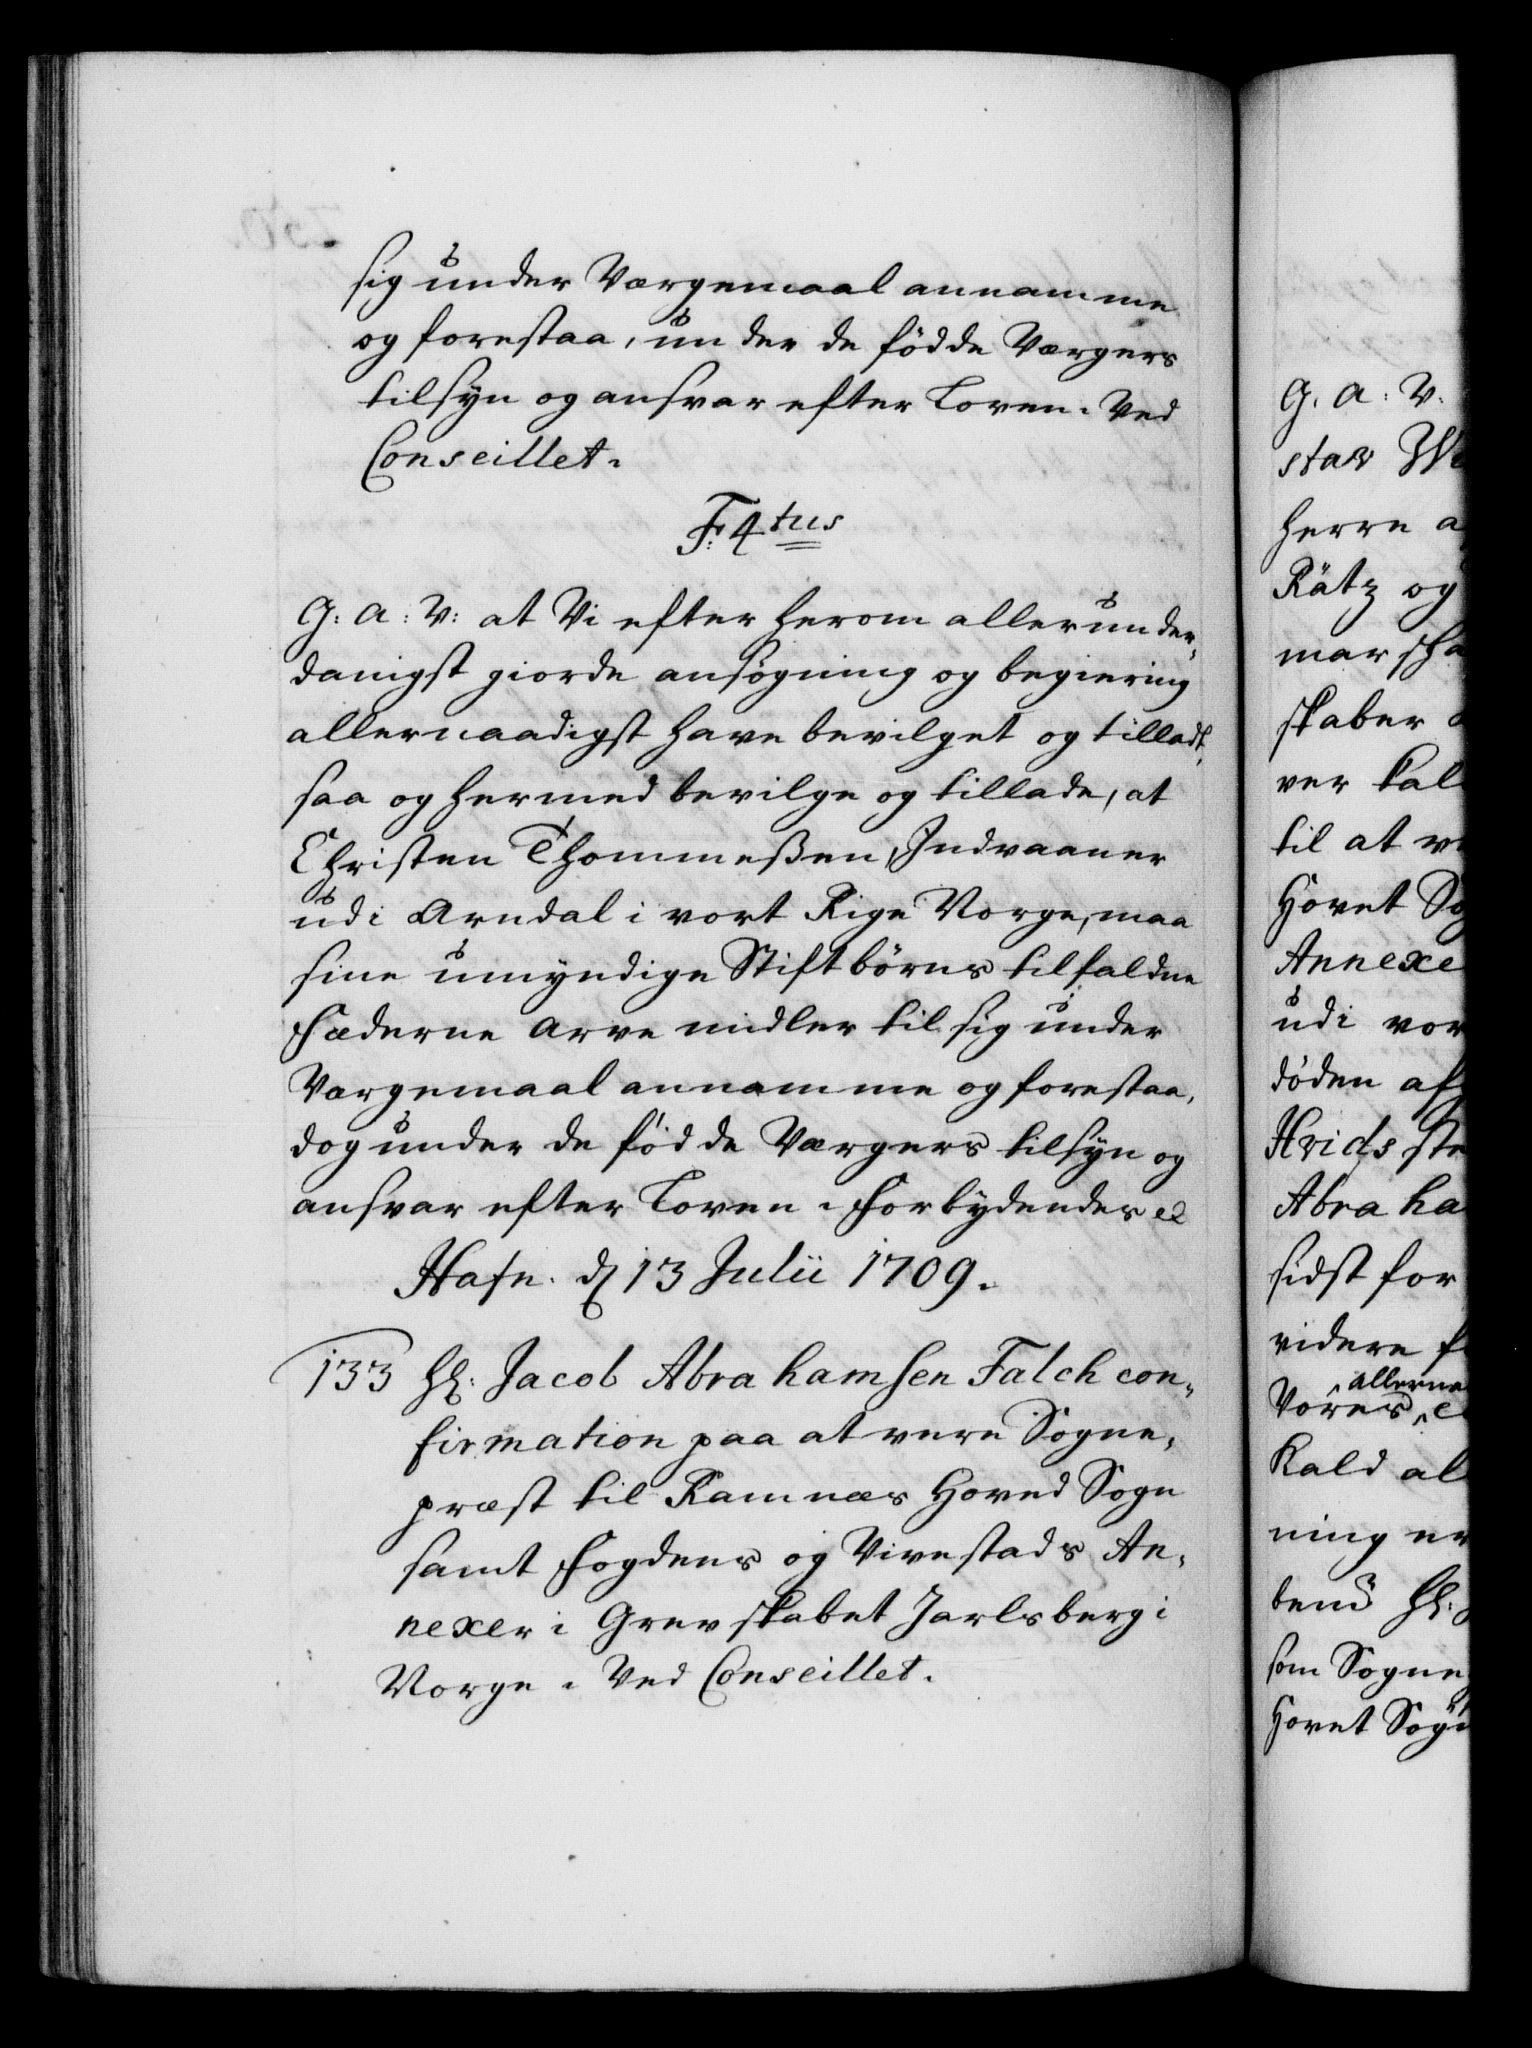 sig under Værgemaal annamme
og forestaa, under de fødde Værgers
tilsyn og ansvar efter Loven. Ved
Conseillet.
F: 4tus
G: A: V: at Vi efter herom allerunder,
danigst giorde ansøgning og begiering
allernaadigst have bevilget og tilladt,
saa og hermed bevilge og tillade, at
Christen Thommeßen, Indvaaner
udi Arndal i vort Rige Norge, maa
sine umyndige Stiftbørns tilfaldne
Fæderne Arve midler til sig under
Værgemaal annamme og forestaa,
dog under de fødde Værgers tilsyn og
ansvar efter Loven. Forbydendes et
Hafn. d 13 Julii 1709.
133 Hr: Jacob Abrahamsen Falch con,
firmation paa at være Sogne,
præst til Ramnæs Hoved Sogn
samt Fogdens og Vivestads An,
nexer i Grevskabet Jarlsberg i
Norge. Ved Conseillet.
G. A: V:
stav
herre
Rätz og
marscha
skaber
ver kal
til at
Hovet
Annexe
udi vor
døden af
Hvids
Abraha
sidst for
videre
allerna
Vores
Kald al
ning
bem̄ Hr:
som Sogne
Hovet Sogn